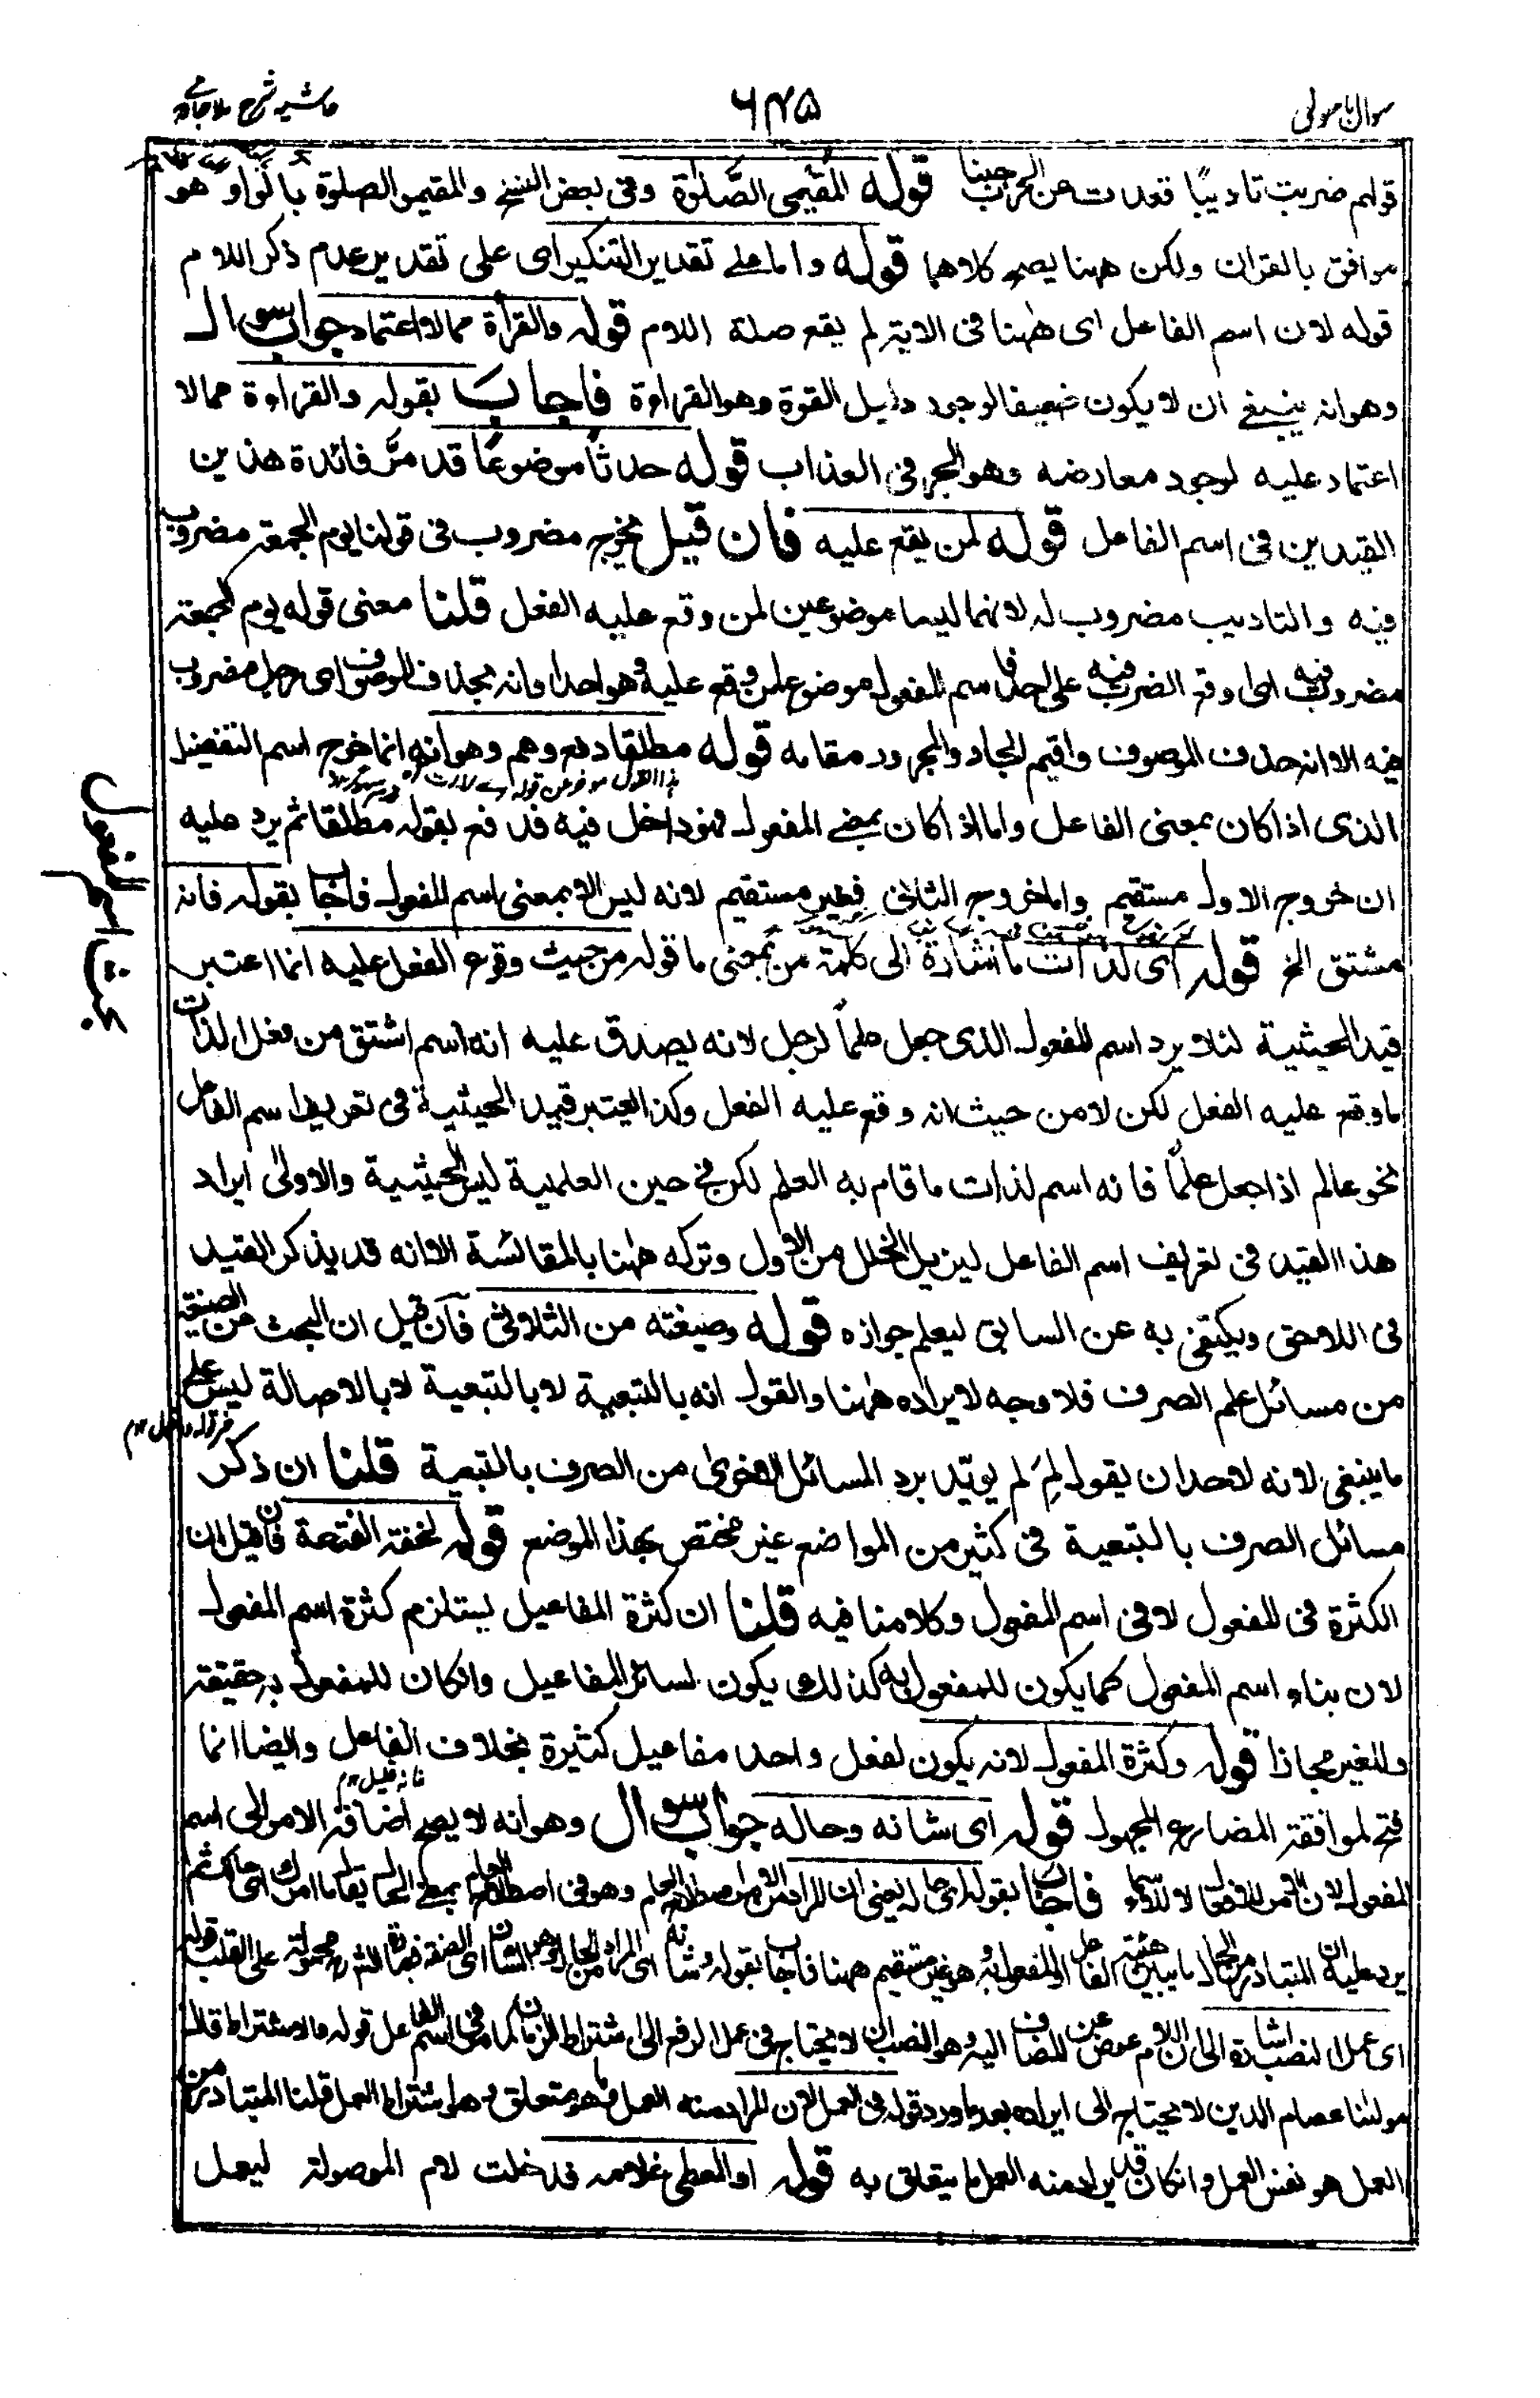 سوال باسولی
۶۴۵
حاشیه شرح ملا جامی
قولهم ضربت تادیبًا قعدت عن الحرب جبنا قوله المقیمی الصَّلٰوة وفی بعض النسخ والمقیمو الصلوة بالواو هو
موافق بالقران ولکن ههنا یصح کلاهما قوله واما علی تقدیر التنکیر ای علی تقدیر عدم ذکر اللام
قوله لان اسم الفاعل ای ههنا فی الایة لم یقع صلة اللام قوله والقرأة مما لا اعتماد جواب سوال
وهو انه ینبغی ان لا یکون ضعیفا لوجود دلیل القوة وهو القراءة فاجاب بقوله والقراءة مما لا
اعتماد علیه لوجود معارضه وهو الجر فی العذاب قوله حدثًا موضوعًا قد مرّ فائدة هذین
القیدین فی اسم الفاعل قوله لمن یقع علیه فان قیل یخرج مضروب فی قولنا یوم الجمعة مضروب
فیه والتادیب مضروب له لانهما لیسا موضوعین لمن وقع علیه الفعل قلنا معنی قوله یوم الجمعة
مضروب فیه ای وقع الضرب فیه علی احد فاسم المفعول موضوع لمن وقع علیه وهو احد او انه بحذف الموصوف ای رجل مضروب
فیه الا انه حذف الموصوف واقیم الجار والمجرور مقامه قوله مطلقا دفع وهم وهو انه انما خرج اسم التفضیل
الذی اذا کان بمعنی الفاعل واما اذا کان بمعنی المفعول فهو داخل فیه فدفع بقوله مطلقا ثم یرد علیه
ان خروج الاول مستقیم واما خروج الثانی فغیر مستقیم لانه لیس الا بمعنی اسم المفعول فاجاب بقوله فانه
مشتق الخ قوله ای لذات ما اشارة الی کلمة من بمعنی ما قوله من حیث وقوع الفعل علیه انما اعتبر
قید الحیثیة لئلا یرد اسم المفعول الذی جعل علمًا لرجل لانه یصدق علیه انه اسم اشتق من فعل لذات
ما وقع علیه الفعل لکن لا من حیث انه وقع علیه الفعل وکذا یعتبر قید الحیثیة فی تعریف اسم الفاعل
نحو عالم اذا جعل علمًا فانه اسم لذات ما قام به العلم لکن فی حین العلمیة لیس الحیثیة والاولی ایراد
هذا القید فی تعریف اسم الفاعل لیزیل الخلل من الاول وترکه ههنا بالمقائسة الا انه قد یذکر القید
فی اللاحق ویکتفی به عن السابق لیعلم جوازه قوله وصیغته من الثلاثی فان قیل ان البحث من الصیغة
من مسائل علم الصرف فلا وجه لایراده ههنا والقول انه بالتبعیة لا بالتبعیة لا بالاصالة لیس علی
ما ینبغی لانه لاحد ان یقول لِمَ لم یورد المسائل الاخری من الصرف بالتبعیة قلنا ان ذکر
مسائل الصرف بالتبعیة فی کثیر من المواضع غیر مختص بهذا الموضع قوله لخفة الفتحة فان قیل ان
الکثرة فی المفعول لا فی اسم المفعول وکلامنا فیه قلنا ان کثرة المفاعیل یستلزم کثرة اسم المفعول
لان بناء اسم المفعول کما یکون للمفعول به کذلک یکون لسائر المفاعیل وان کان للمفعول به حقیقة
وللغیر مجازا قوله وکثرة المفعول لانه یکون لفعل واحد مفاعیل کثیرة بخلاف الفاعل وایضا انما
فانه قلیل ۱۲م
فتح لموافقة المضارع المجهول قوله ای شانه وحاله جواب سوال وهو انه لا یصح اضافة الامر الی اسم
المفعول لان الامر للافعال لا للاسماء فاجاب بقوله ای حاله یعنی ان المراد
یرد علیه ان المتبادر من الحال ما یبین هیئة الفاعل او المفعول به وهو غیر مستقیم ههنا فاجاب بقوله وشانه ای المراد من الحال هو الشان
ای عمل النصب اشارة الی ان اللام عوض عن المضاف الیه وهو النصب لان لا یحتاج فی عمل الرفع الی اشتراط الزمان کما مر فی اسم الفاعل قوله والاشتراط قال
مولٰنا عصام الدین لا یحتاج الی ایراده بعد ما ورد قوله فی العمل لان المراد منه العمل وما هو متعلق به هو اشتراط العمل قلنا المتبادر من
العمل هو نفس العمل وان کان قد یراد منه العمل ما یتعلق به قوله او المعطی غلامه فدخلت لام الموصولة لیعمل
بحث اسم المفعول